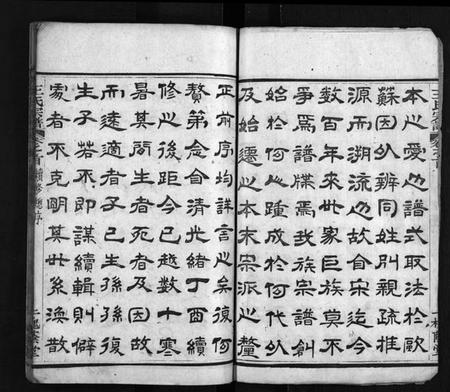 王氏宗譜 卷首
本之愛也譜式取法於歐
蘇因以辨同姓別親疏推
源而溯流也故自宋迄今
數百年來世家巨族莫不
爭為譜牒焉我族宗譜創
始於何人踵成於何代以
及始遷之本末宗派之釐
正前序均詳言之矣復何
贅第念自清光緒丁酉續
修之後距今已越數十寒
暑其間生者死者及因故
而遠適者子已生孫孫復
生子若不即謀續輯則僻
處者不克明其世系渙散
王氏宗譜 卷首 續修總序